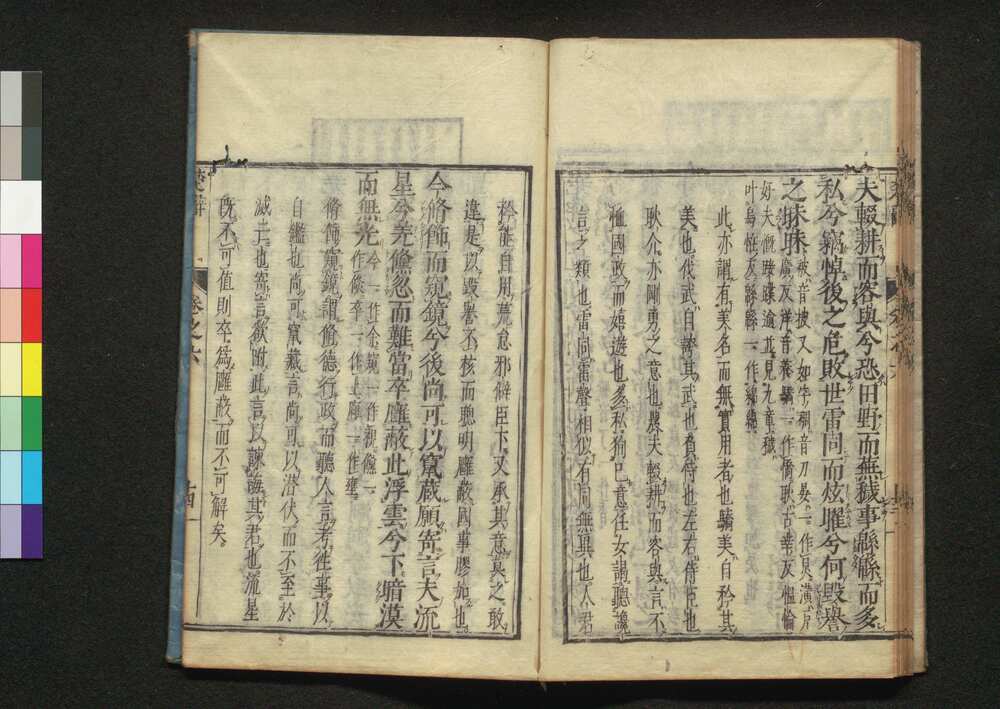 夫輟耕而容與兮恐田野而無穢事緜緜而多
私兮竊悼後之危敗世雷同而炫曜兮何毀譽
之昧昧
此亦謂有美名而無實用者也驕美自矜其
美也伐武自誇其武也負恃也左右侍臣也
耿介亦剛勇之意也農夫輟耕而容與言不
恤國政而嬉遊也多私狥己意任女謁聽讒
言之類也雷同雷聲相似有同無異也人君
矜能自用荒怠邪僻臣下又承其意莫之敢
違是以毀譽不核而聰明雝蔽國事膠加也
今脩飾而窺鏡兮後尚可以竄藏願寄言夫流
星兮羌儵忽而難當卒雝蔽此浮雲兮下暗漠
而無光
脩飾窺鏡謂脩德行政而聽人言考往事以
自鑑也尚可竄藏言尚可以潛伏而不至於
滅亡也寄言欲附此言以諫誨其君也流星
既不可值則卒爲雝蔽而不可解矣
楚辭
卷之六